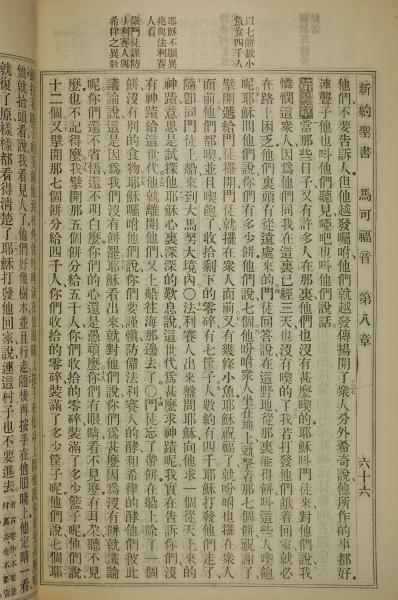 新約聖書 馬可福音 第八章 六十六
以七餅數小
魚食四千人
耶穌不顯異
兆與法利賽
人看
儆門徒謹防
法利賽人與
希律之異敎
他們、不要告訴人但他越發囑咐他們就越發傳揚開了衆人分外希奇說他所作的事都好、
連聾子他也呌他們聽見啞吧也呌他們說話、
當那些日子又有許多人在那裏他們也沒有甚麼喫的耶穌呌門徒來對他們說我
憐憫這衆人因爲他們同我在這裏已經三天也沒有喫的了我若打發他們餓着回家就必
在路上困乏他們裏頭有從遠處來的門徒回答說在這野地從那裏能得餅呌這些人喫飽
呢耶穌問他們說你們有多少餅他們說七個他吩咐衆人坐在地上就拏着那七個餅祝謝了
擘開遞給門徒擺開門徒就擺在衆人面前又有幾條小魚耶穌祝福了就吩咐也擺在衆人
面前他們都喫並且喫飽了收拾剩下的零碎有七筐子人數約有四千耶穌打發他們走了
隨卽同門徒上船來到大馬努大境內〇法利賽人出來盤問耶穌向他求一個從天上來的
神蹟意思是試探他耶穌心裏深深的歎息說這世代爲甚麼求神蹟呢我實在告訴你們沒
有神蹟給這世代他就離開他們又上船往海那邊去了〇門徒忘了帶餅在船上除了一個
餅沒有別的食物耶穌囑咐他們說你們要謹愼防備法利賽人的酵和希律的酵他們彼此
議論說這是因爲我們沒有餅罷耶穌看出來就對他們說你們爲甚麼因爲沒有餅就議論
呢你們還不省悟還不明白麼你們的心還是愚頑麼你們有眼睛看不見麼有耳朶聽不見
麼也不記得麼我擘開那五個餅分給五千人你們收拾的零碎裝滿了多少籃子呢他們說
十二個又擘開那七個餅分給四千人你們收拾的零碎裝滿了多少筐子呢他們說七個耶
他就抬頭看說我看見人了他們好像樹木並且行走隨後再按手在他眼睛上他定睛一看
就復了原樣樣都看得淸楚了耶穌打發他回家說連這村子也不要進去